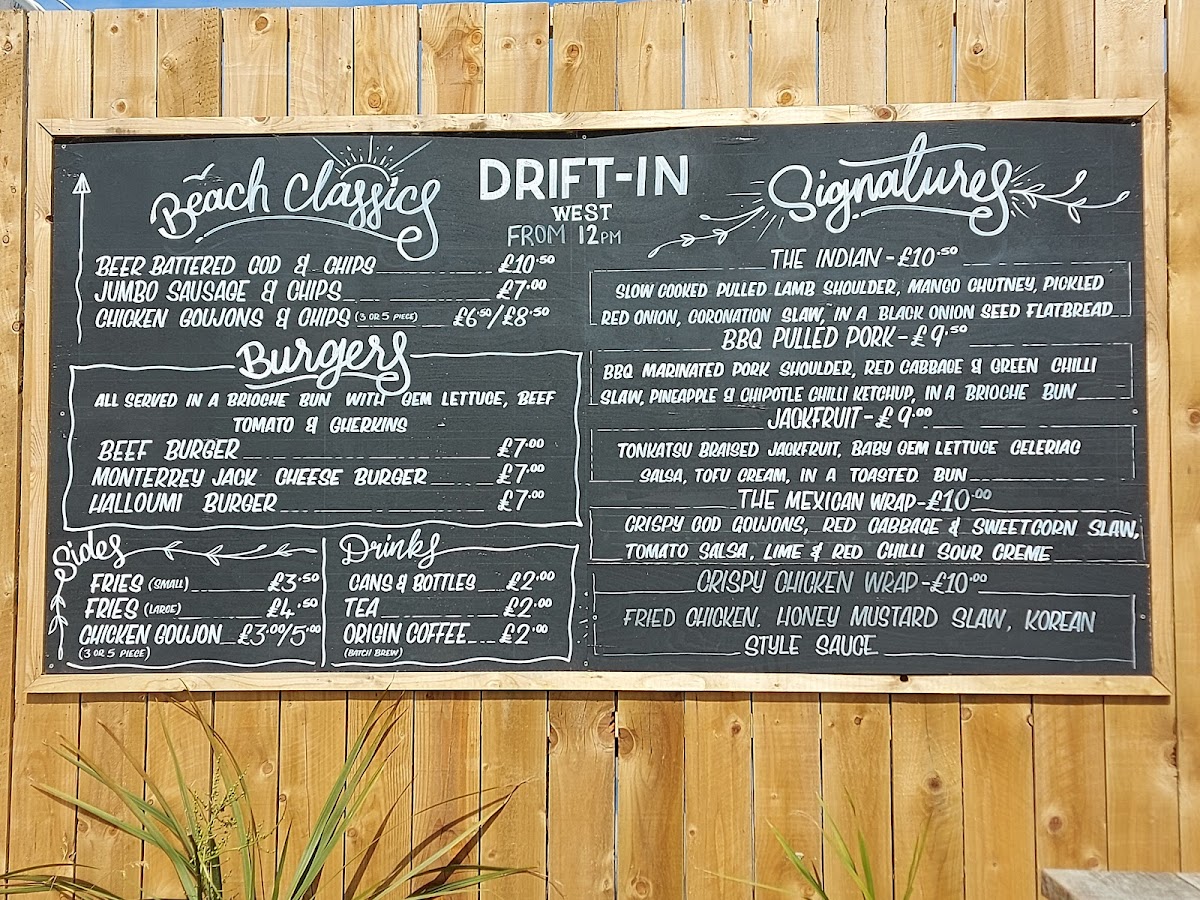 Beach Classics
BEER BATTERED COD & CHIPS £10.50
JUMBO SAUSAGE & CHIPS £7.00
CHICKEN GOUJONS & CHIPS (3 OR 5 PIECE) £6.50/£8.50
Burgers
ALL SERVED IN A BRIOCHE BUN WITH GEM LETTUCE, BEEF
TOMATO & GHERKINS
BEEF BURGER £7.00
MONTERREY JACK CHEESE BURGER £7.00
HALLOUMI BURGER £7.00
Sides
FRIES (SMALL) £3.50
FRIES (LARGE) £4.50
CHICKEN GOUJON £3.00/5.00
(3 OR 5 PIECE)
Drinks
CANS & BOTTLES £2.00
TEA £2.00
ORIGIN COFFEE £2.00
(BATCH BREW)
DRIFT-IN
WEST
FROM 12PM
Signatures
THE INDIAN - £10.50
SLOW COOKED PULLED LAMB SHOULDER, MANGO CHUTNEY, PICKLED
RED ONION, CORONATION SLAW, IN A BLACK ONION SEED FLATBREAD
BBQ PULLED PORK - £9.50
BBQ MARINATED PORK SHOULDER, RED CABBAGE & GREEN CHILLI
SLAW, PINEAPPLE & CHIPOTLE CHILLI KETCHUP, IN A BRIOCHE BUN
JACKFRUIT - £9.00
TONKATSU BRAISED JACKFRUIT, BABY GEM LETTUCE CELERIAC
SALSA, TOFU CREAM, IN A TOASTED BUN
THE MEXICAN WRAP - £10.00
CRISPY COD GOUJONS, RED CABBAGE & SWEETCORN SLAW,
TOMATO SALSA, LIME & RED CHILLI SOUR CREME
CRISPY CHICKEN WRAP - £10.00
FRIED CHICKEN, HONEY MUSTARD SLAW, KOREAN
STYLE SAUCE